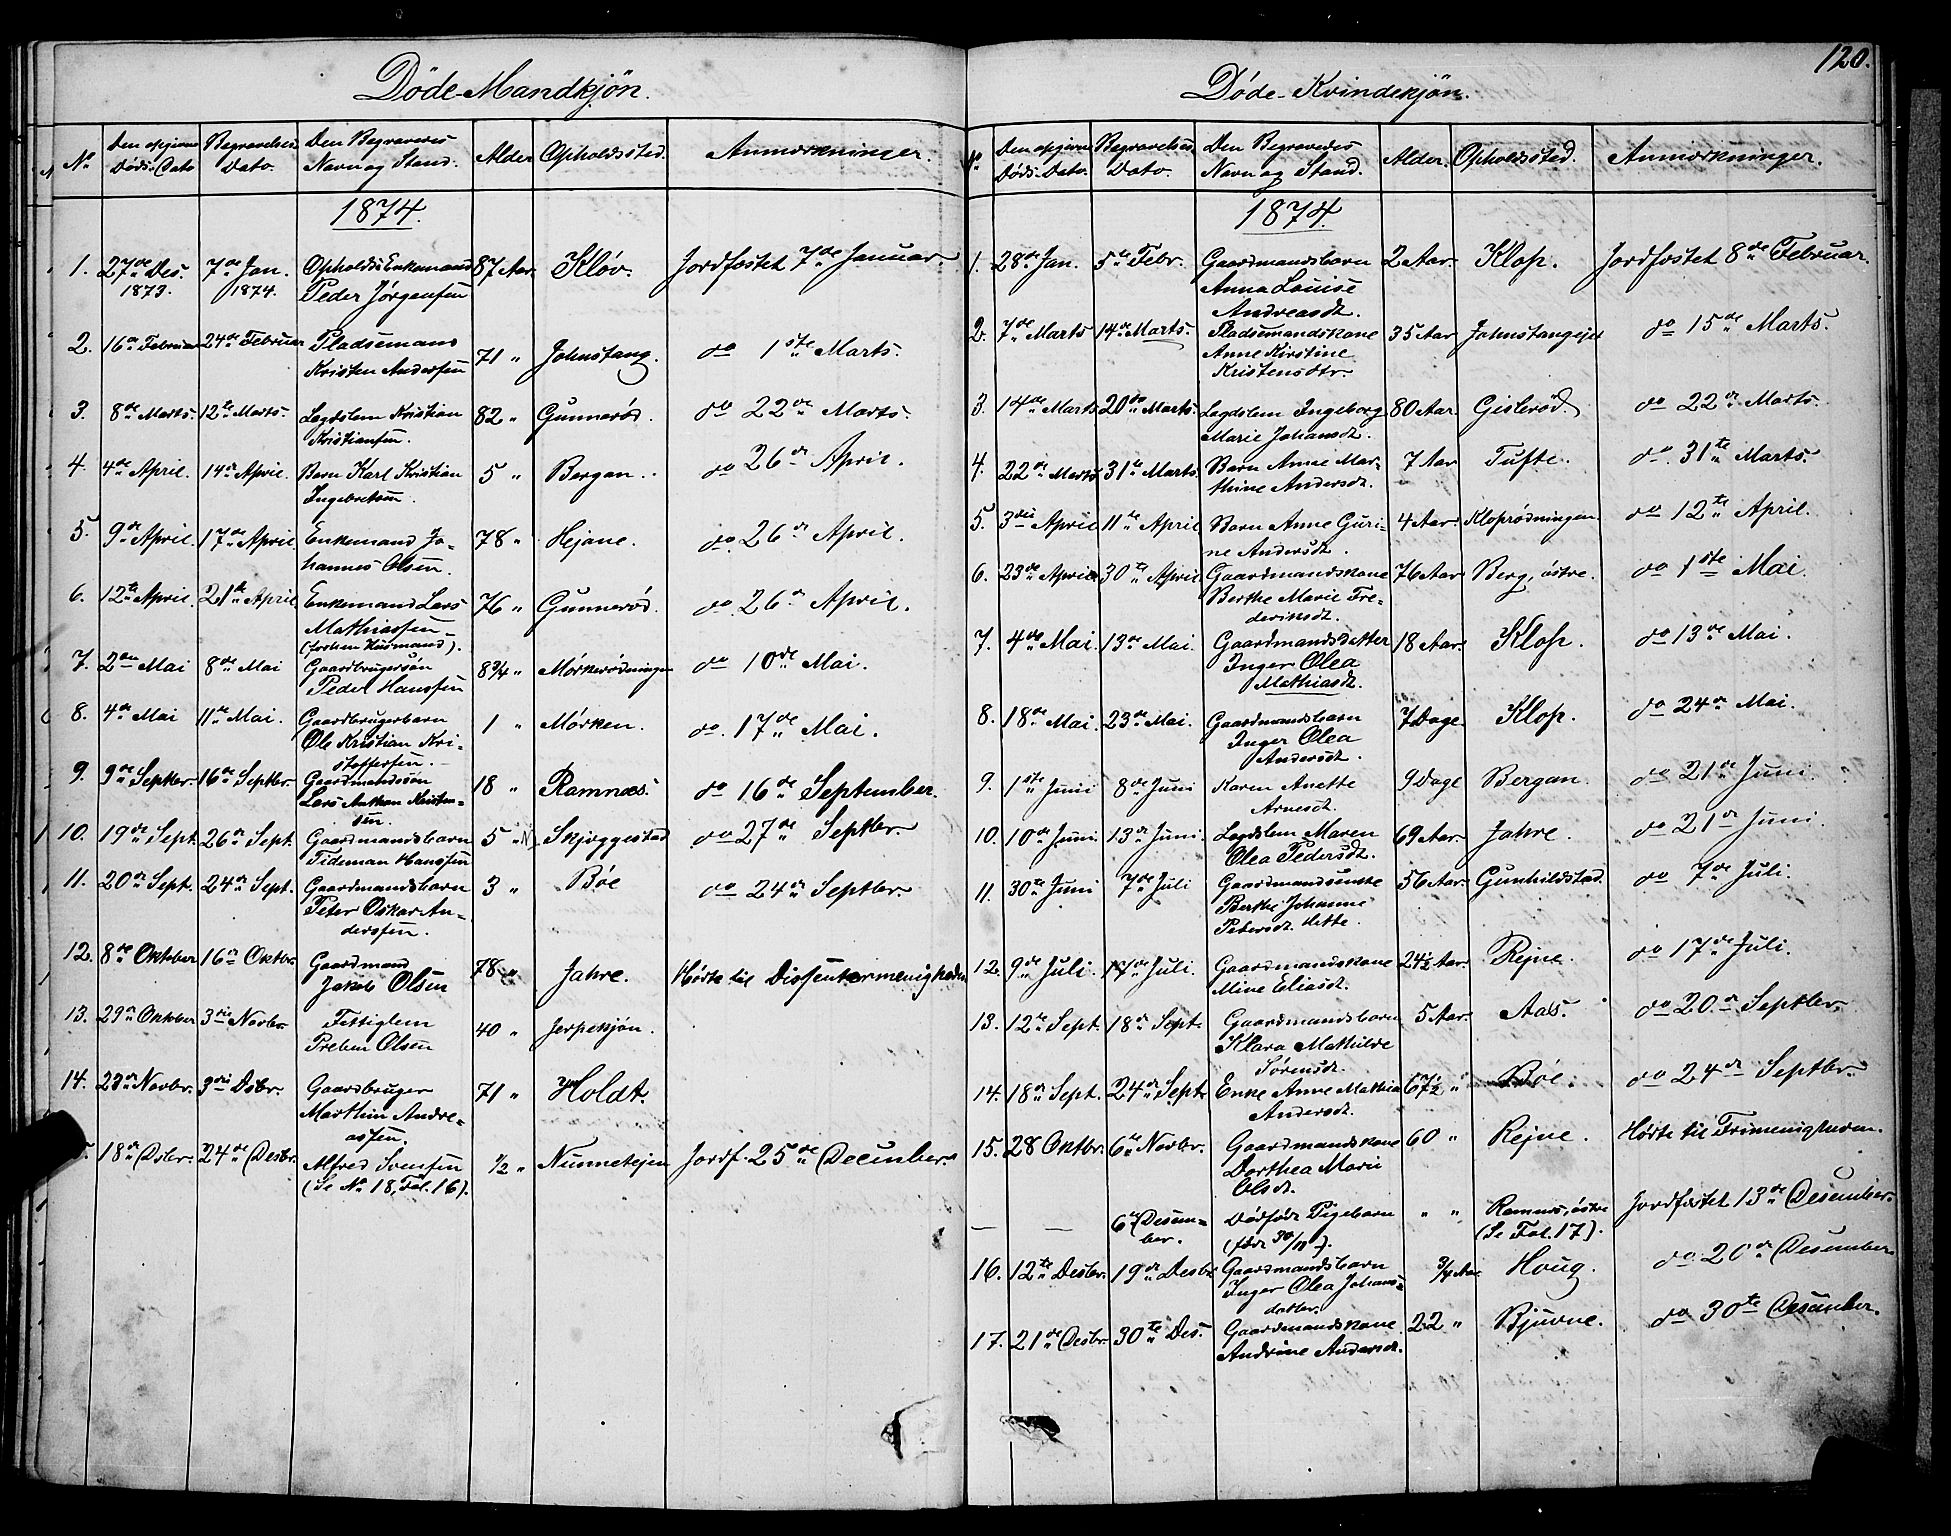 120.
Döde-Mandkjön.
No
Den opgivne Döds-Dato
Begravelses Dato.
Den Begravedes Navn og Stand.
Alder
Opholdssted.
Anmærkninger.
1874.
1. 27de Des. 1873. 7de Jan. 1874. Opholds Enkemand 87 Aar. Klöv. Jordfæstet 7de Januar
Peder Jörgensen
2. 16de Februar 24de Februar Pladsemand 71 " Johnstang. do 1ste Marts.
Kristen Andersen
3. 8de Marts. 12te Marts. Lægdslem Kristian 82 " Gunneröd. do 22de Marts.
Kristiansen.
4. 4de April. 14de April. Barn Karl Kristian 5 " Bergan. do 26de April.
Ingebretsen.
5. 9de April. 17de April Enkemand Jo-
hannes Olsen. 78 " Hejane. do 26de April.
6. 12te April. 21te April Enkemand Lars 76 " Gunneröd. do 26de April.
Mathiassen
(forhen Husmand).
7. 2den Mai 8de Mai Gaardbrugersön 8¾ " Mörkerödningen do 10de Mai.
Peder Hanssen
8. 4de Mai 11te Mai. Gaardbrugerbarn 1 " Mörken. do. 17de Mai.
Ole Kristian Kri-
stoffersen.
9. 9de Septbr. 16de Septbr. Gaardmandssön 18 " Ramnæs. do 16de September.
Lars Anthon Kristen-
sen.
10. 19de Sept. 26de Sept. Gaardmandsbarn 5 " Skjeggestad do 27de Septbr.
Tideman Hanssen
11. 20de Sept. 24de Sept. Gaardmandsbarn 3 " Böe do 24de Septbr.
Peter Oskar An-
derssen.
12. 8de Oktober 16de Oktbr. Gaardmand 78 " Jahre. Hörte til Dissentermenigheden
Jakob Olsen
13. 29de Oktober 3die Novbr. Fattiglem 40 " Jerpekjön.
Preben Olsen
14. 23de Novbr. 3die Dsbr. Gaardbruger 71 " Holdt.
Marthin Andre-
assen.
18de Dsbr. 24de Desbr. Alfred Svensen ½ " Nunnetejen Jordf. 25de December.
(Se No 18, Fol. 16).
Döde-Kvindekjön.
No
Den opgivne Döds-Dato.
Begravelses Dato.
Den Begravedes Navn og Stand.
Alder.
Opholdssted.
Anmærkninger.
1874.
1. 28de Jan. 5te Febr. Gaardmandsbarn 2 Aar. Klop. Jordfæstet 8de Februar.
Anna Louise
Andreasdt.
2. 7de Marts 14de Marts. Pladsemandskone 35 Aar Johnstangejet do 15de Marts.
Anne Kirstine
Kristensdtr.
3. 14de Marts 20de Marts. Lægdslem Ingeborg 80 Aar. Gisleröd do 22de Marts.
Marie Johansdt.
4. 22de Marts 31te Marts. Barn Anne Mar-
thine Andersdt. 7 Aar Tufte. do. 31te Marts.
5. 3die April 11te April Barn Anne Guri-
ne Andersdt. 4 Aar. Kloprödningen do 12te April.
6. 23de April 30te April Gaardmandskone 76 Aar Berg, östre. do 1ste Mai.
Berthe Marie Fre-
deriksdt.
7. 4de Mai 13de Mai. Gaardmandsdatter 18 Aar. Klop. do 13de Mai.
Inger Olea
Mathiasdt.
8. 18de Mai. 23de Mai. Gaardmandsbarn 7 Dage Klop. do 24de Mai.
Inger Olea
Andersdt.
9. 1ste Juni 8de Juni Karen Anette 9 Dage Bergan. do 21de Juni.
Arnesdt.
10. 10de Juni. 13de Juni. Lægdslem Maren 69 Aar. Jahre. do 21de Juni.
Olea Pedersdt.
11. 30te Juni 7de Juli Gaardmandsenke 56 Aar. Gunhildstad. do 7de Juli.
Berthe Johanne
Petersdt.
12. 9de Juli 17de Juli. Gaardmandskone 24½ Aar. Rejne. do 17de Juli.
Mine Eliasdt.
13. 12te Sept. 18de Sept. Gaardmandsbarn 5 Aar. Aas. do 20de Septbr.
Klara Mathilde
Sörensdt.
14. 18de Sept. 24de Sept. Enke Anne Mathia 67½ " Böe. do 24de Septbr.
Andersdt.
15. 28 Oktbr. 6te Novbr. Gaardmandskone 60 " Rejne. Hörte til Frimenigheden.
Dorthea Marie
Olsdt.
— — 6te Desem-
ber. Dödfödt Pigebarn " " Ramnæs, östre Jordfæstet 13de Desember.
(födt 30/11). (Se Fol. 17).
16. 12te Desbr. 19de Desbr. Gaardmandsbarn ¾ Aar Houg. do 20de Desember
Inger Olea Johans-
datter.
17. 21de Desbr. 30te Des. Gaardmandskone 22 " Bjuvne. do 30te Desember.
Andrine Andersdt.